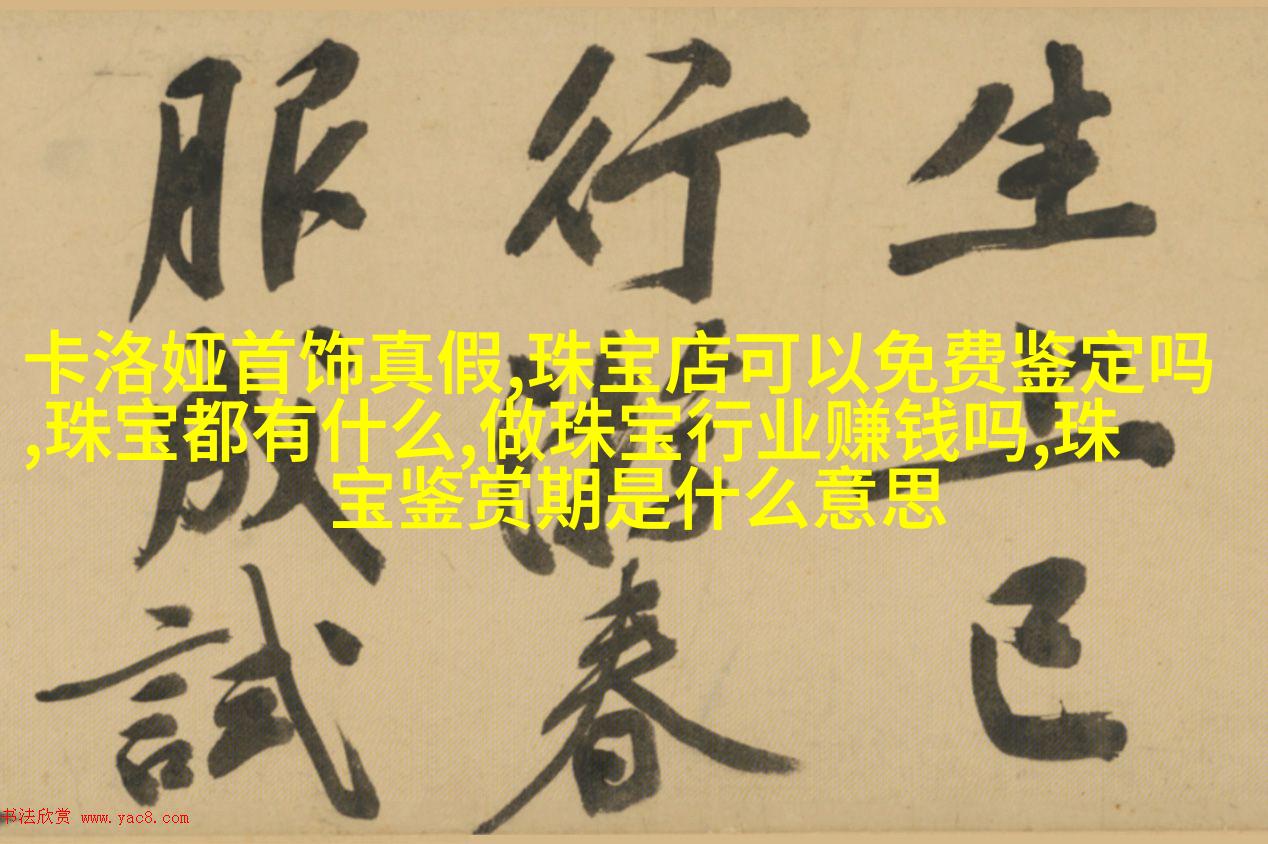 生上巳
行游春
服成試
卡洛娅首饰真假,珠宝店可以免费鉴定吗
,珠宝都有什么,做珠宝行业赚钱吗,珠
宝鉴赏期是什么意思
书法欣赏 www.yac8.com